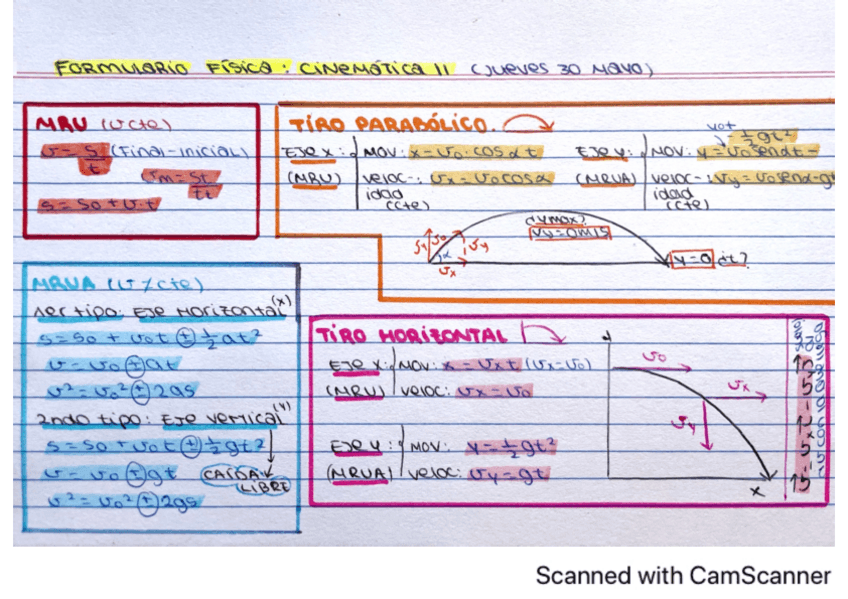 FORMULARIO FÍSICA: CINEMÁTICA II (JUEVES 30 MAYO)
MRU (v cte)
v = s/t (Final-inicial)
vm = st/tt
s = so + v·t
TIRO PARABÓLICO.
EJE X: MOV: x = vo·cosαt
(MRU) veloc-: vx = vocosα
idad
(cte)
vot
EJE Y: MOV: y = vosenαt - ½gt²
(MRUA) veloc-: vy = vosenα-g
idad
(cte)
¿ymax?
vy=0m/s
vy vo vy
α vx
y=0 ¿t?
MRUA (v≠cte)
1er tipo: EJE HORIZONTAL (x)
s = so + vot ± ½at²
v = vo ± at
v² = vo² ± 2as
2ndo tipo: EJE VERTICAL (y)
s = so + vot ± ½gt²
v = vo ± gt CAÍDA
LIBRE
v² = vo² ± 2gs
TIRO HORIZONTAL
EJE X: MOV: x = vxt (vx=vo)
(MRU) veloc: vx = vo
EJE Y: MOV: y = ½gt²
(MRUA) veloc: vy = gt
vo
vx
vy
x
Scanned with CamScanner